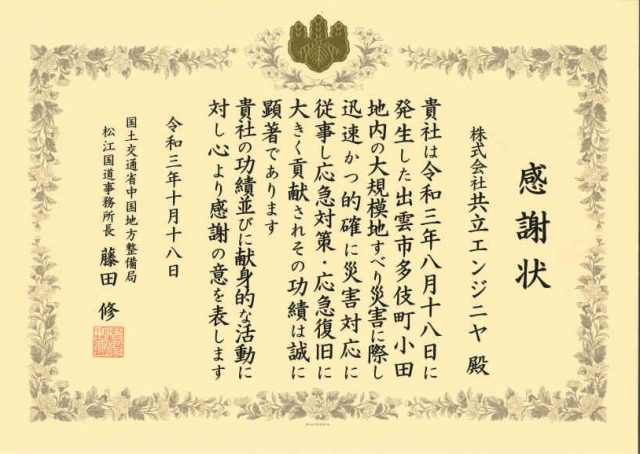 感謝状
株式会社共立エンジニヤ 殿
貴社は令和三年八月十八日に
発生した出雲市多伎町小田
地内の大規模地すべり災害に際し
迅速かつ的確に災害対応に
従事し応急対策・応急復旧に
大きく貢献されその功績は誠に
顕著であります
貴社の功績並びに献身的な活動に
対し心より感謝の意を表します
令和三年十月十八日
国土交通省中国地方整備局
松江国道事務所長 藤田 修